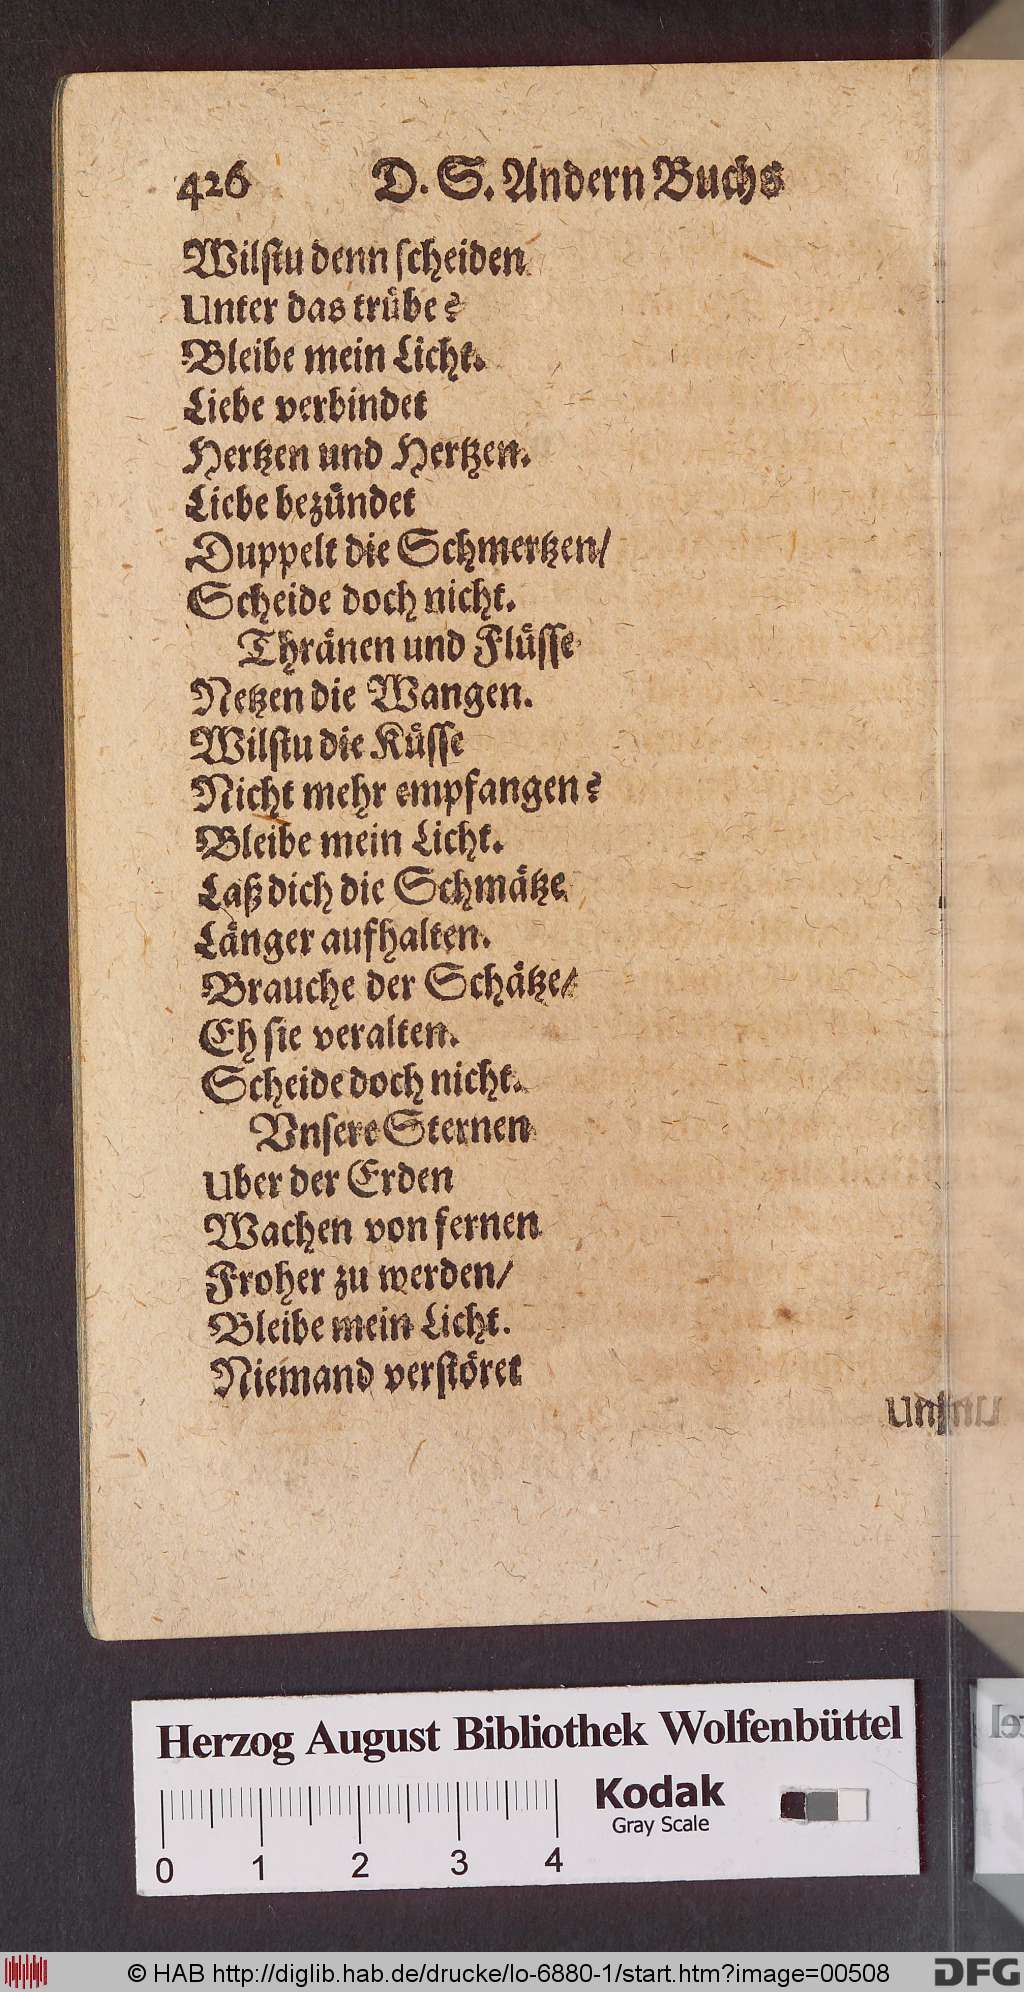 426 D. S. Andern Buchs
Wilstu denn scheiden
Unter das trübe?
Bleibe mein Licht.
Liebe verbindet
Hertzen und Hertzen.
Liebe bezündet
Duppelt die Schmertzen/
Scheide doch nicht.
Thränen und Flüsse
Netzen die Wangen.
Wilstu die Küsse
Nicht mehr empfangen?
Bleibe mein Licht.
Laß dich die Schmätze
Länger aufhalten.
Brauche der Schätze/
Eh sie veralten.
Scheide doch nicht.
Vnsere Sternen
Uber der Erden
Wachen von fernen
Froher zu werden/
Bleibe mein Licht.
Niemand verstöret
Un
Herzog August Bibliothek Wolfenbüttel
0 1 2 3 4
Kodak
Gray Scale
© HAB http://diglib.hab.de/drucke/lo-6880-1/start.htm?image=00508
DFG